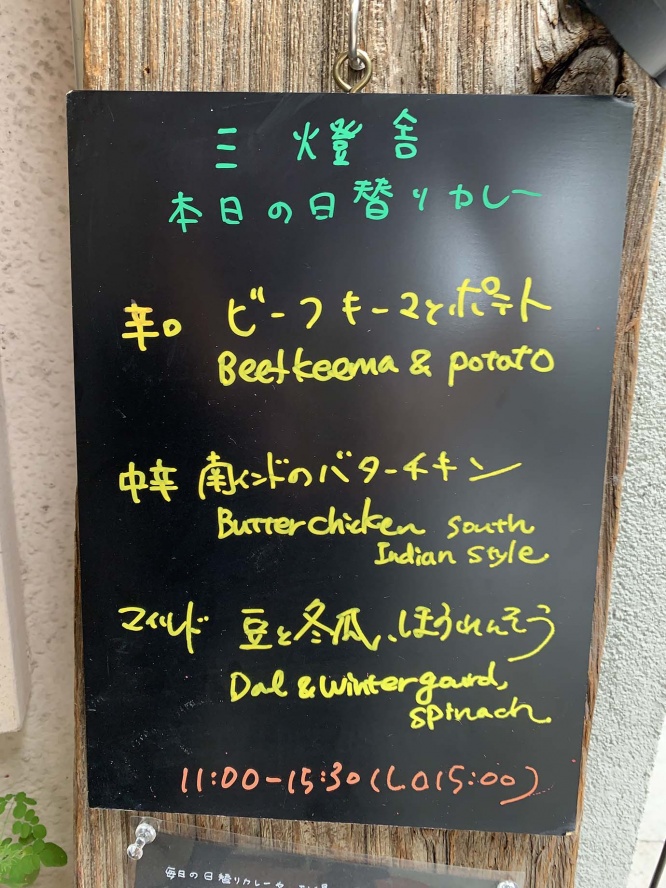 三 燈舎
本日の日替りカレー
辛口 ビーフキーマとポテト
Beef keema & potato
中辛 南インドのバターチキン
Butter chicken south
Indian style
マイルド 豆と冬瓜、ほうれんそう
Dal & winter gourd,
spinach
11:00-15:30(L.O15:00)
毎日の日替りカレーを